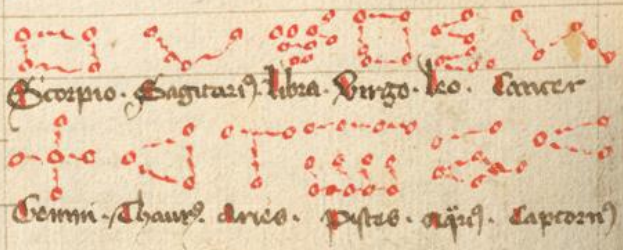 Scorpio. Sagitariꝰ. libra. Virgo. leo. Cancer
Gemini. Thaurꝰ. Aries. Pisces. Aq̈riꝰ. Capricornꝰ